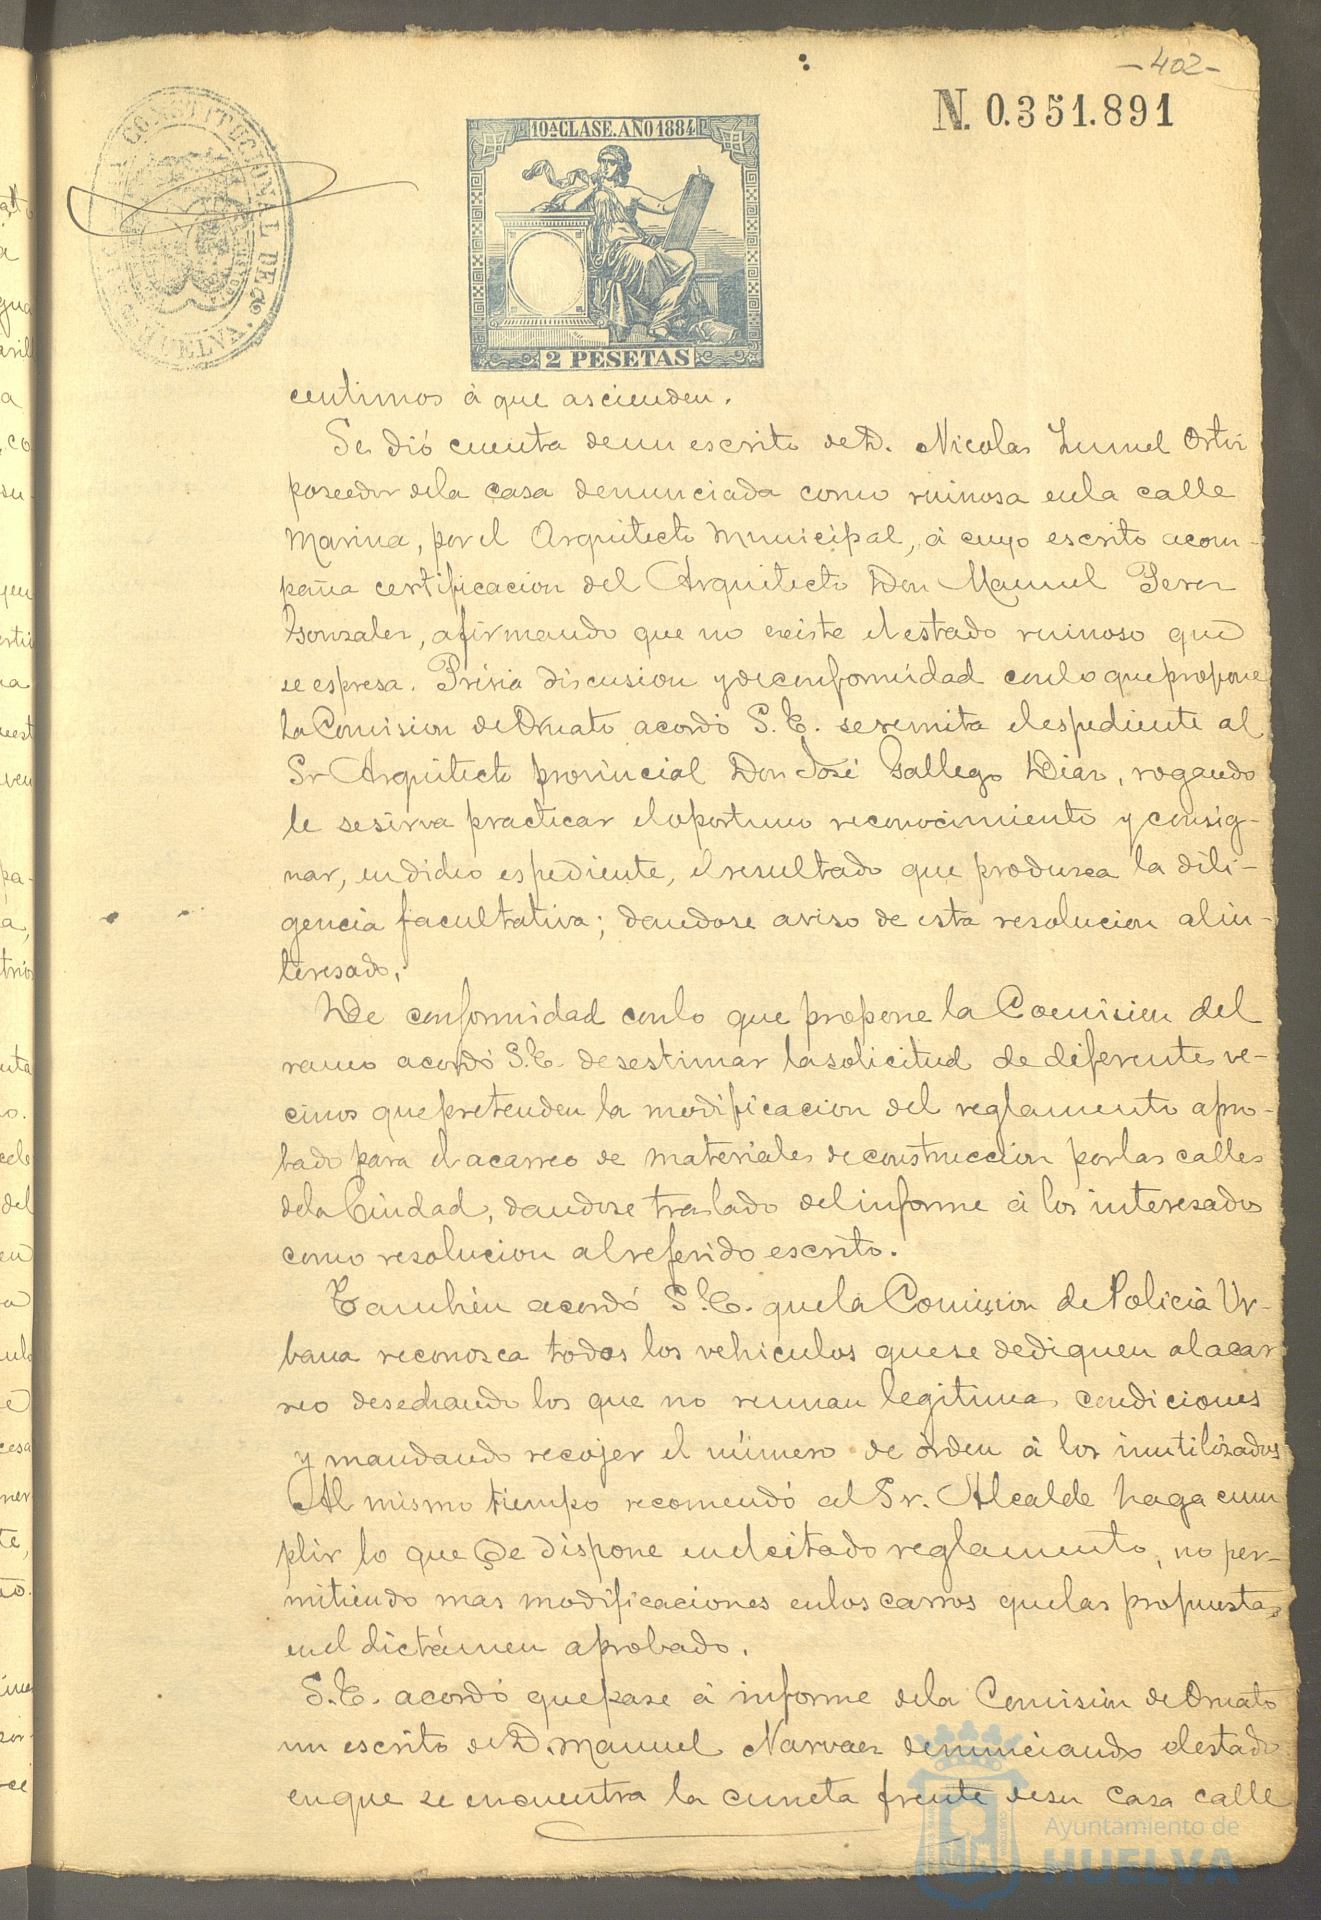 -402-
N. 0.351.891
CONSTITUCIONAL DE HUELVA
10ª CLASE. AÑO 1884
2 PESETAS
centimos á que ascienden.
Se dió cuenta de un escrito de D. Nicolas
poseedor dela casa denunciada como ruinosa enla calle
Marina, por el Arquitecto Municipal, á cuyo escrito acom-
paña certificacion del Arquitecto Don Manuel Perez
Gonzalez, afirmando que no existe el estado ruinoso que
se espresa. Prévia discusion y de conformidad con lo que propone
la Comision de Ornato acordó S.E. se remita el espediente al
Sr Arquitecto provincial Don José Gallego Diaz, rogando
le se sirva practicar el oportuno reconocimiento y consig-
nar, en dicho espediente, el resultado que produzca la dili-
gencia facultativa; dandose aviso de esta resolucion al in-
teresado.
De conformidad con lo que propone la Comision del
ramo acordó S.E. desestimar la solicitud de diferentes ve-
cinos que pretenden la modificacion del reglamento apro-
bado para el acarreo de materiales de construccion por las calles
de la Ciudad, dandose traslado del informe á los interesados
como resolucion al referido escrito.
Tambien acordó S.E. que la Comision de Policia Ur-
bana reconozca todos los vehiculos que se dediquen al acar
reo desechando los que no reunan legitimas condiciones
y mandando recojer el número de órden á los inutilizados
Al mismo tiempo recomendó al Sr. Alcalde haga cum
plir lo que se dispone en el citado reglamento, no per-
mitiendo mas modificaciones en los carros que las propuestas
en el dictámen aprobado.
S.E. acordó que pase á informe de la Comision de Ornato
un escrito de D. Manuel Narvaez denunciando el estado
en que se encuentra la cuneta frente de su casa calle
Ayuntamiento de
HUELVA